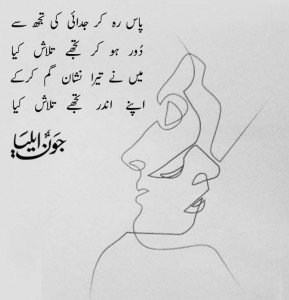 پاس رہ کر جدائی کی تجھ سے
دُور ہو کر تجھے تلاش کیا
میں نے تیرا نشان گم کرکے
اپنے اندر تجھے تلاش کیا
جون ایلیا